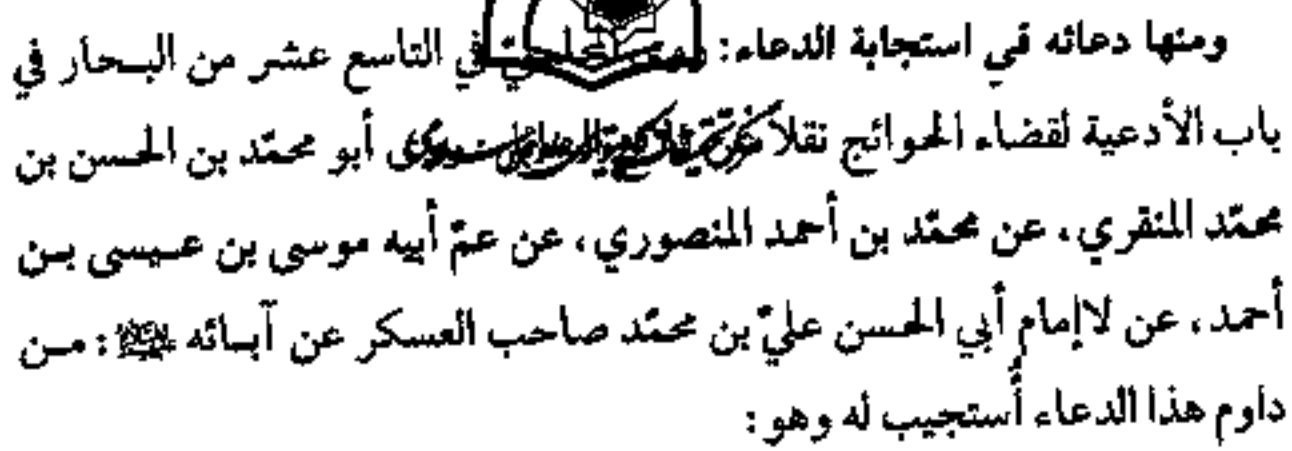 ومنها دعائه في استجابة الدعاء: في التاسع عشر من البحار في
باب الأدعية لقضاء الحوائج نقلاً أبو محمّد بن الحسن بن
محمّد المنقري، عن محمّد بن أحمد المنصوري، عن عمّ أبيه موسى بن عيسى بن
أحمد، عن لاإمام أبي الحسن عليّ بن محمّد صاحب العسكر عن آبائه عليهم السلام: من
داوم هذا الدعاء أُستجيب له وهو: